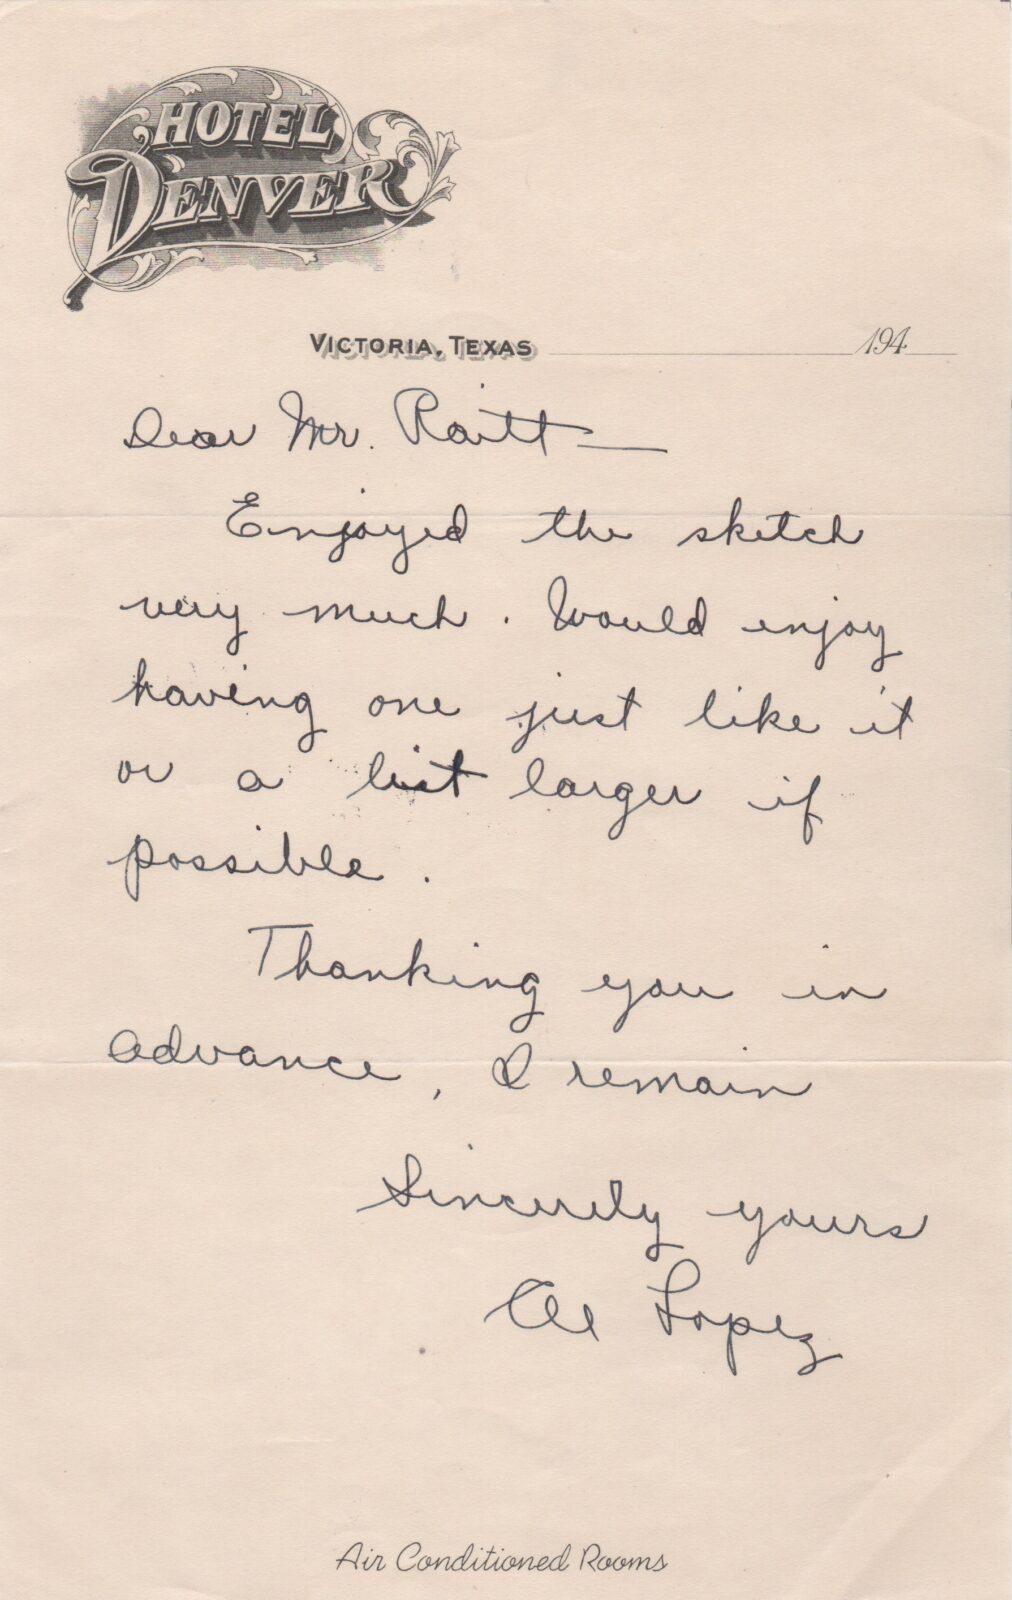 HOTEL
DENVER
VICTORIA, TEXAS 194
Dear Mr. Raitt —
Enjoyed the sketch
very much. Would enjoy
having one just like it
or a bit larger if
possible.
Thanking you in
advance, I remain
Sincerely yours
Al Lopez
Air Conditioned Rooms